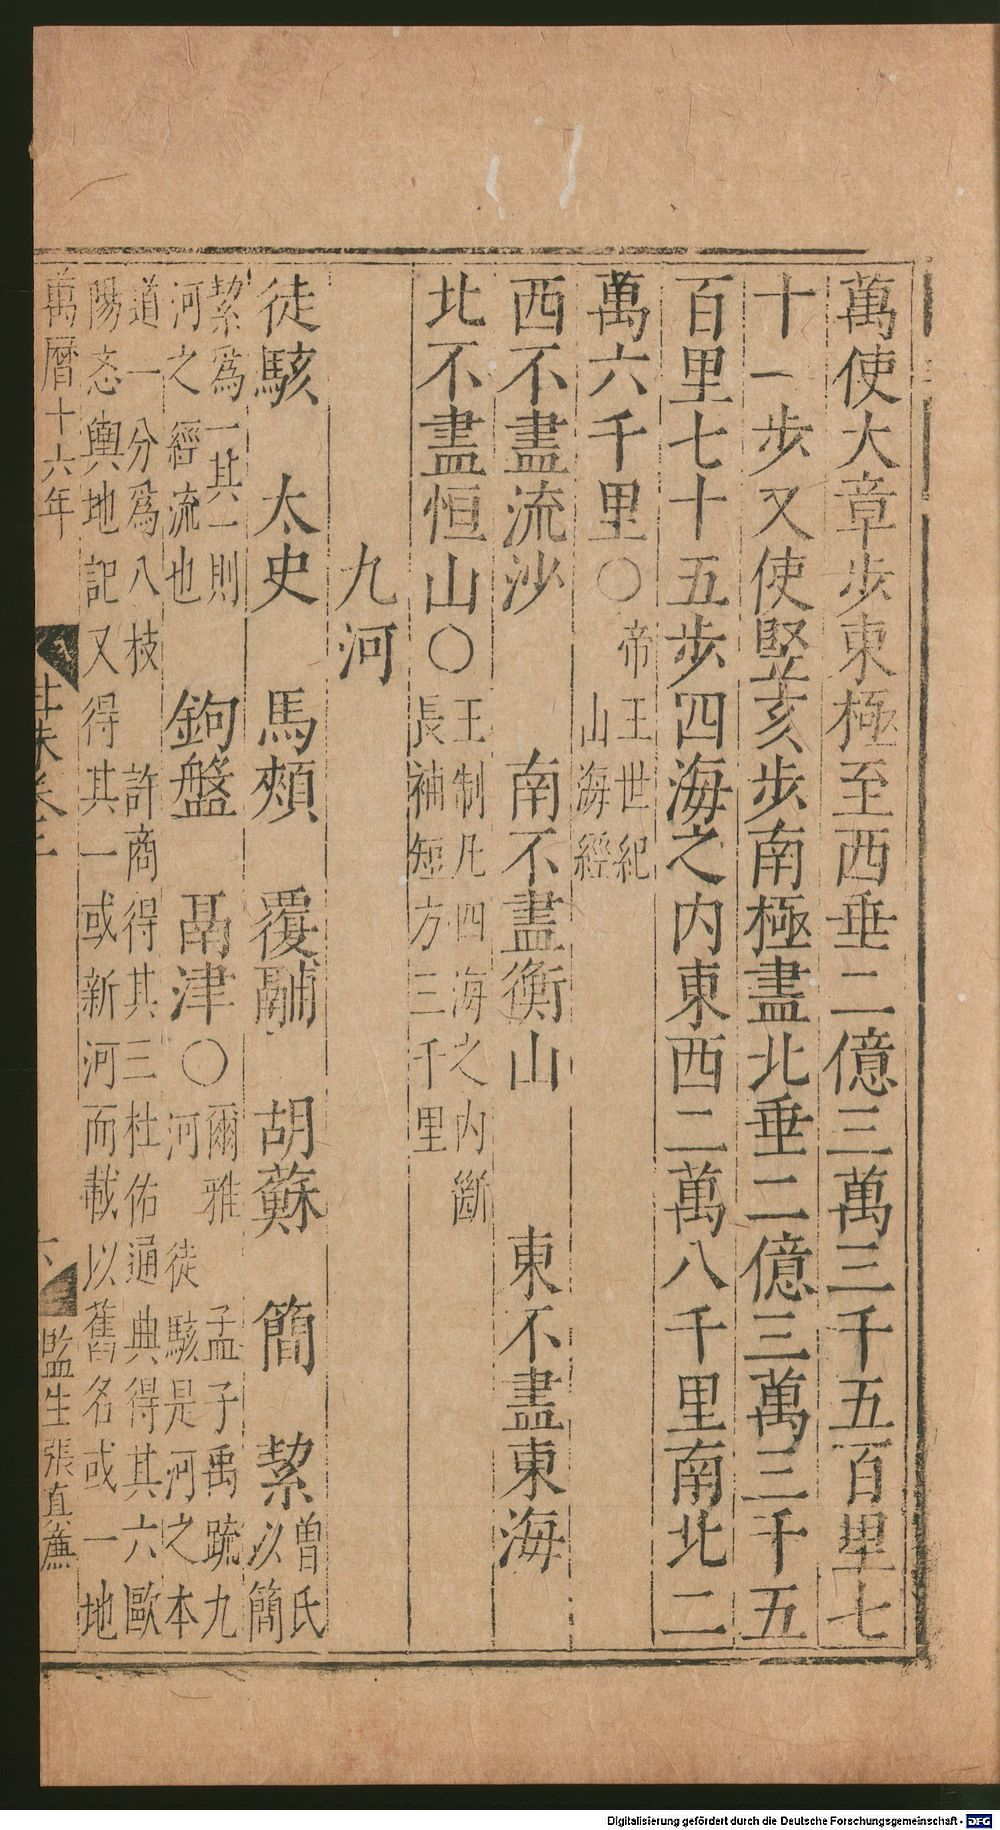 萬使大章步東極至西垂二億三萬三千五百里七
十一步又使竪亥步南極盡北垂二億三萬三千五
百里七十五步四海之内東西二萬八千里南北二
萬六千里○帝王世紀
山海經
西不盡流沙 南不盡衡山 東不盡東海
北不盡恒山○王制凡四海之内斷
長補短方三千里
九河
徒駭 太史 馬頰 覆鬴 胡蘇 簡 絜曾氏
以簡
絜爲一其一則
河之經流也 鉤盤 鬲津○爾雅 孟子禹䟽九
河 徒駭是河之本
道一分爲八枝 許商得其三杜佑通典得其六歐
陽忞輿地記又得其一或新河而載以舊名或一地
萬曆十六年
監生張真薦
Digitalisierung gefördert durch die Deutsche Forschungsgemeinschaft - DFG